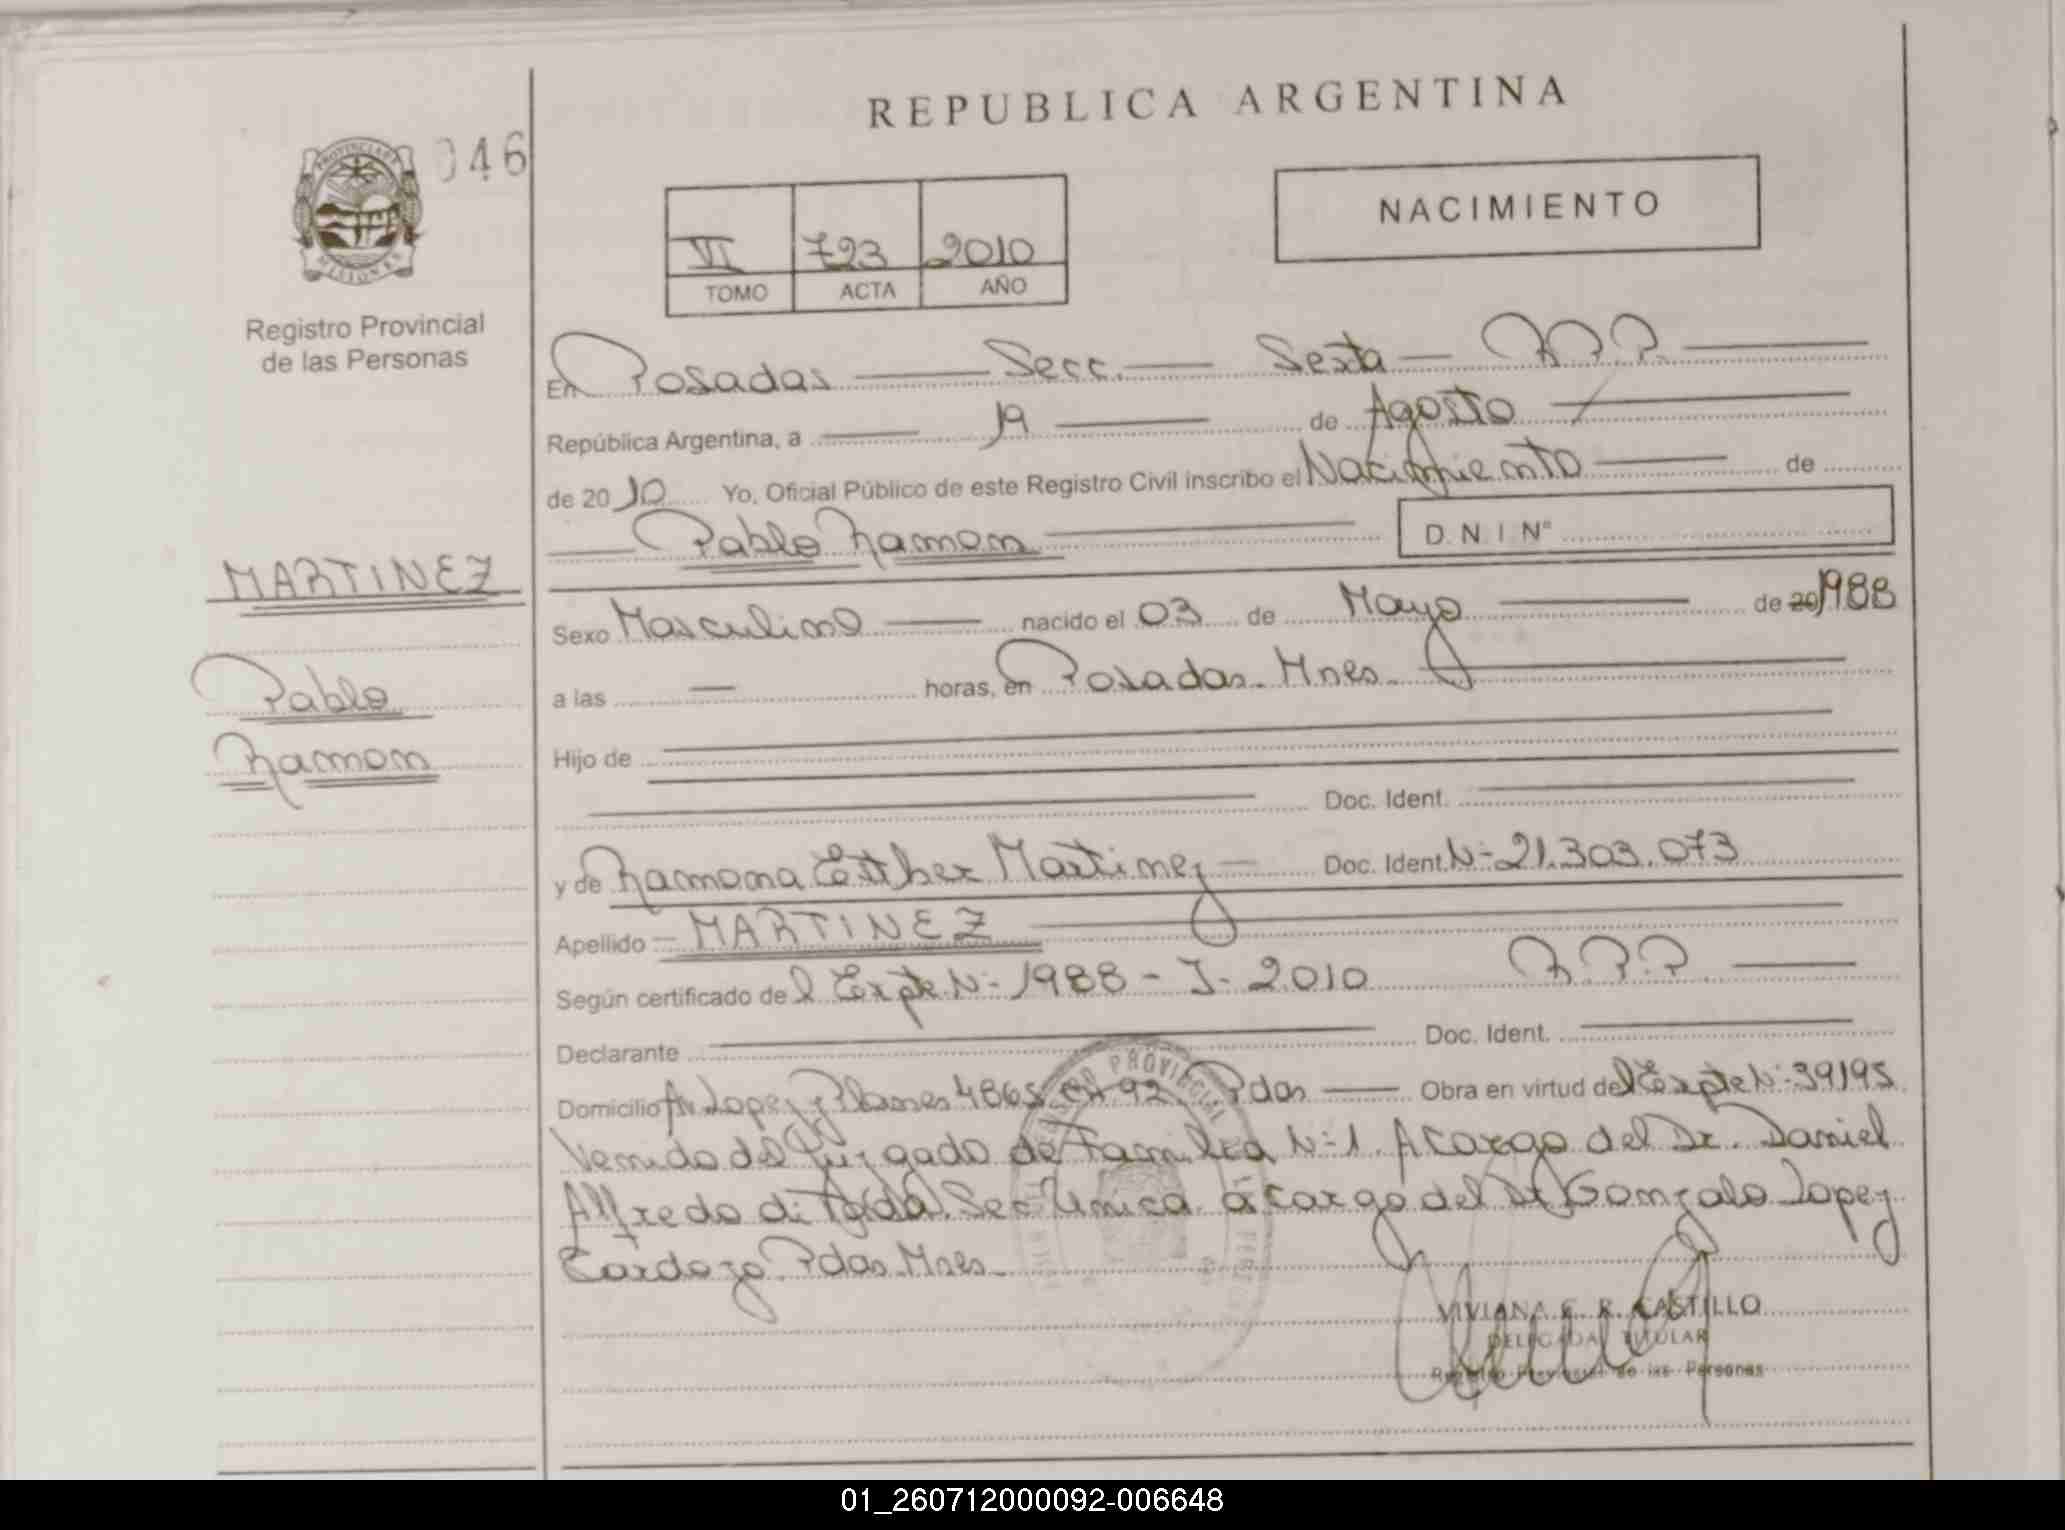 REPUBLICA ARGENTINA
046
PROVINCIA DE MISIONES
Registro Provincial
de las Personas
NACIMIENTO
VI 723 2010
TOMO ACTA AÑO
En Posadas Secc. Sexta
República Argentina, a 19 de Agosto
de 2010 Yo, Oficial Público de este Registro Civil inscribo el Nacimiento de
Pablo Ramon D.N.I. Nº
MARTINEZ
Pablo
Ramon
Sexo Masculino nacido el 03 de Mayo de 20 1988
a las horas, en Posadas. Mnes.
Hijo de
Doc. Ident.
y de Ramona Esther Martinez Doc. Ident. Nº 21.303.073
Apellido MARTINEZ
Según certificado del Expte Nº 1988 - J - 2010
Declarante Doc. Ident.
Domicilio Av Lopez y Planes 4865 Ch 92. Pdas Obra en virtud del Expte Nº 39195
Venido del Juzgado de Familia Nº 1. A cargo del Dr. Daniel
Alfredo di Sec Unica a cargo del Dr Gonzalo Lopez
Cardozo Pdas. Mnes.
VIVIANA E. R. CASTILLO
DELEGADA TITULAR
Registro Provincial de las Personas
REGISTRO PROVINCIAL
01_260712000092-006648